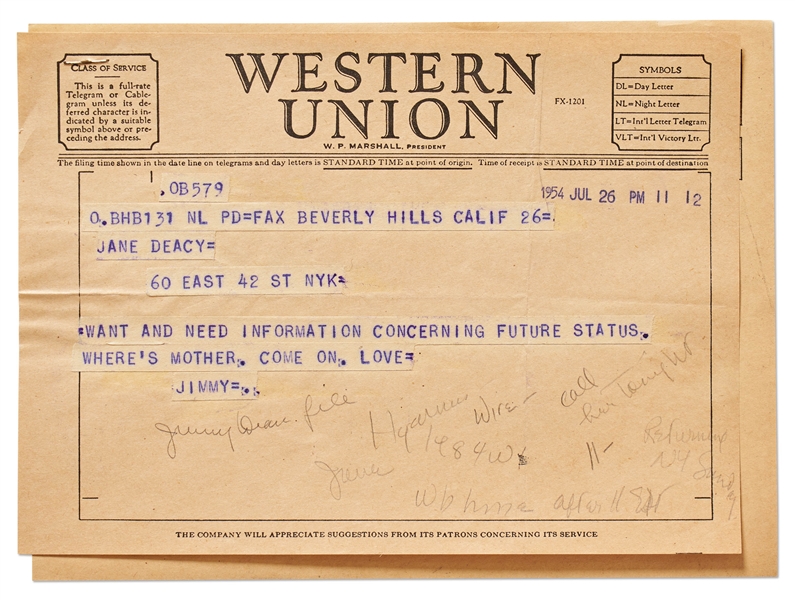 CLASS OF SERVICE
This is a full-rate
Telegram or Cable-
gram unless its de-
ferred character is in-
dicated by a suitable
symbol above or pre-
ceding the address.
WESTERN
UNION
W. P. MARSHALL, PRESIDENT
FX-1201
SYMBOLS
DL=Day Letter
NL=Night Letter
LT=Int'l Letter Telegram
VLT=Int'l Victory Ltr.
The filing time shown in the date line on telegrams and day letters is STANDARD TIME at point of origin. Time of receipt is STANDARD TIME at point of destination
.OB579
1954 JUL 26 PM 11 12
O.BHB131 NL PD=FAX BEVERLY HILLS CALIF 26=
JANE DEACY=
60 EAST 42 ST NYK=
=WANT AND NEED INFORMATION CONCERNING FUTURE STATUS.
WHERE'S MOTHER. COME ON. LOVE=
JIMMY=.
Jimmy Dean file
Hyannis
1984W
Wire -
call
her tonight
11-
Returning
NY
Jane
after 11
THE COMPANY WILL APPRECIATE SUGGESTIONS FROM ITS PATRONS CONCERNING ITS SERVICE